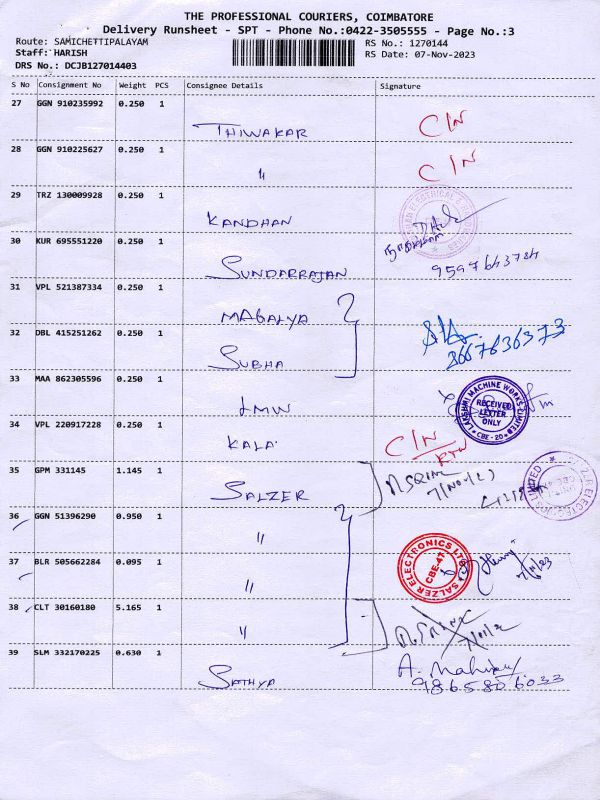 THE PROFESSIONAL COURIERS, COIMBATORE
Delivery Runsheet - SPT - Phone No.:0422-3505555 - Page No.:3
Route: SAMICHETTIPALAYAM
RS No.: 1270144
Staff: HARISH
RS Date: 07-Nov-2023
DRS No.: DCJB127014403
S No Consignment No Weight PCS Consignee Details Signature
27 GGN 910235992 0.250 1
THIWAKAR C/N
28 GGN 910225627 0.250 1
" C/N
29 TRZ 130009928 0.250 1
KANDHAN
30 KUR 695551220 0.250 1
SUNDARRAJAN 9597643784
31 VPL 521387334 0.250 1
MAGALYA
32 DBL 415251262 0.250 1
SUBHA
33 MAA 862305596 0.250 1
LMW
LAKSHMI MACHINE WORKS LIMITED
RECEIVED
LETTER
ONLY
CBE - 20
34 VPL 220917228 0.250 1
KALA C/N
RTN
35 GPM 331145 1.145 1
SALZER
36 GGN 51396290 0.950 1
"
37 BLR 505662284 0.095 1
"
SALZER ELECTRONICS LTD
CBE-47
7/11/23
38 CLT 30160180 5.165 1
"
39 SLM 332170225 0.630 1
SATHYA
9865806033